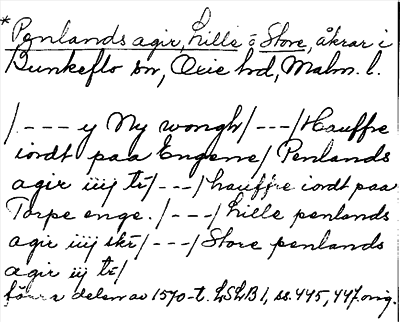 *Penlands agir, Lille o Store, åkrar i
Bunkeflo sn, Oxie hd, Malm. l.
/.---y Ny wongh/---/Hauffre
iordt paa Engene/Penlands
agir iiij tr/---/hauffre iordt paa
Torpe enge./---/Lille penlands
agir iiij skr/---/Store penlands
agir iij tr/
förra delen av 1570-t. LSLB 1, ss. 445, 447 orig.